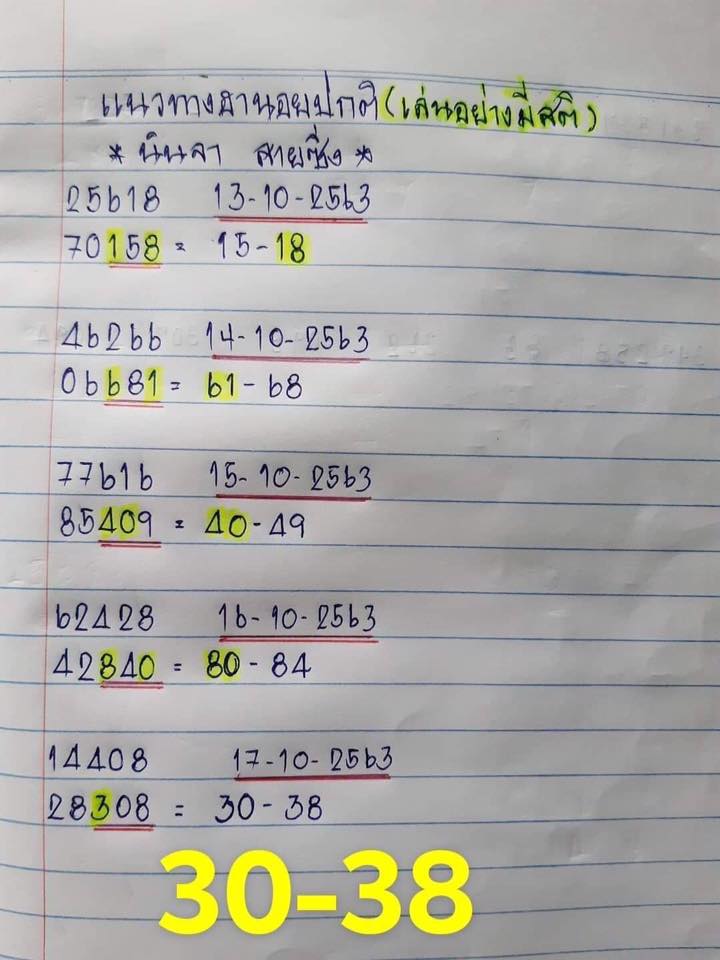 แนวทางฮานอยปกติ(เล่นอย่างมีสติ)
* นันลา สายซิ่ง *
25618 13-10-2563
70158 = 15-18
46266 14-10-2563
06681 = 61-68
77616 15-10-2563
85409 = 40-49
62428 16-10-2563
42840 = 80-84
14408 17-10-2563
28308 = 30-38
30-38